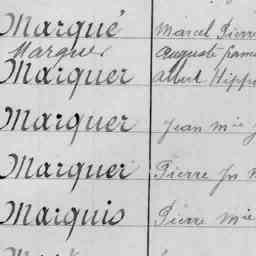 Marqué Marcel Pierre
Marquer Auguste
Marquer Albert Hippo
Marquer Jean Mie
Marquer Pierre Jn M
Marquis Pierre Mie